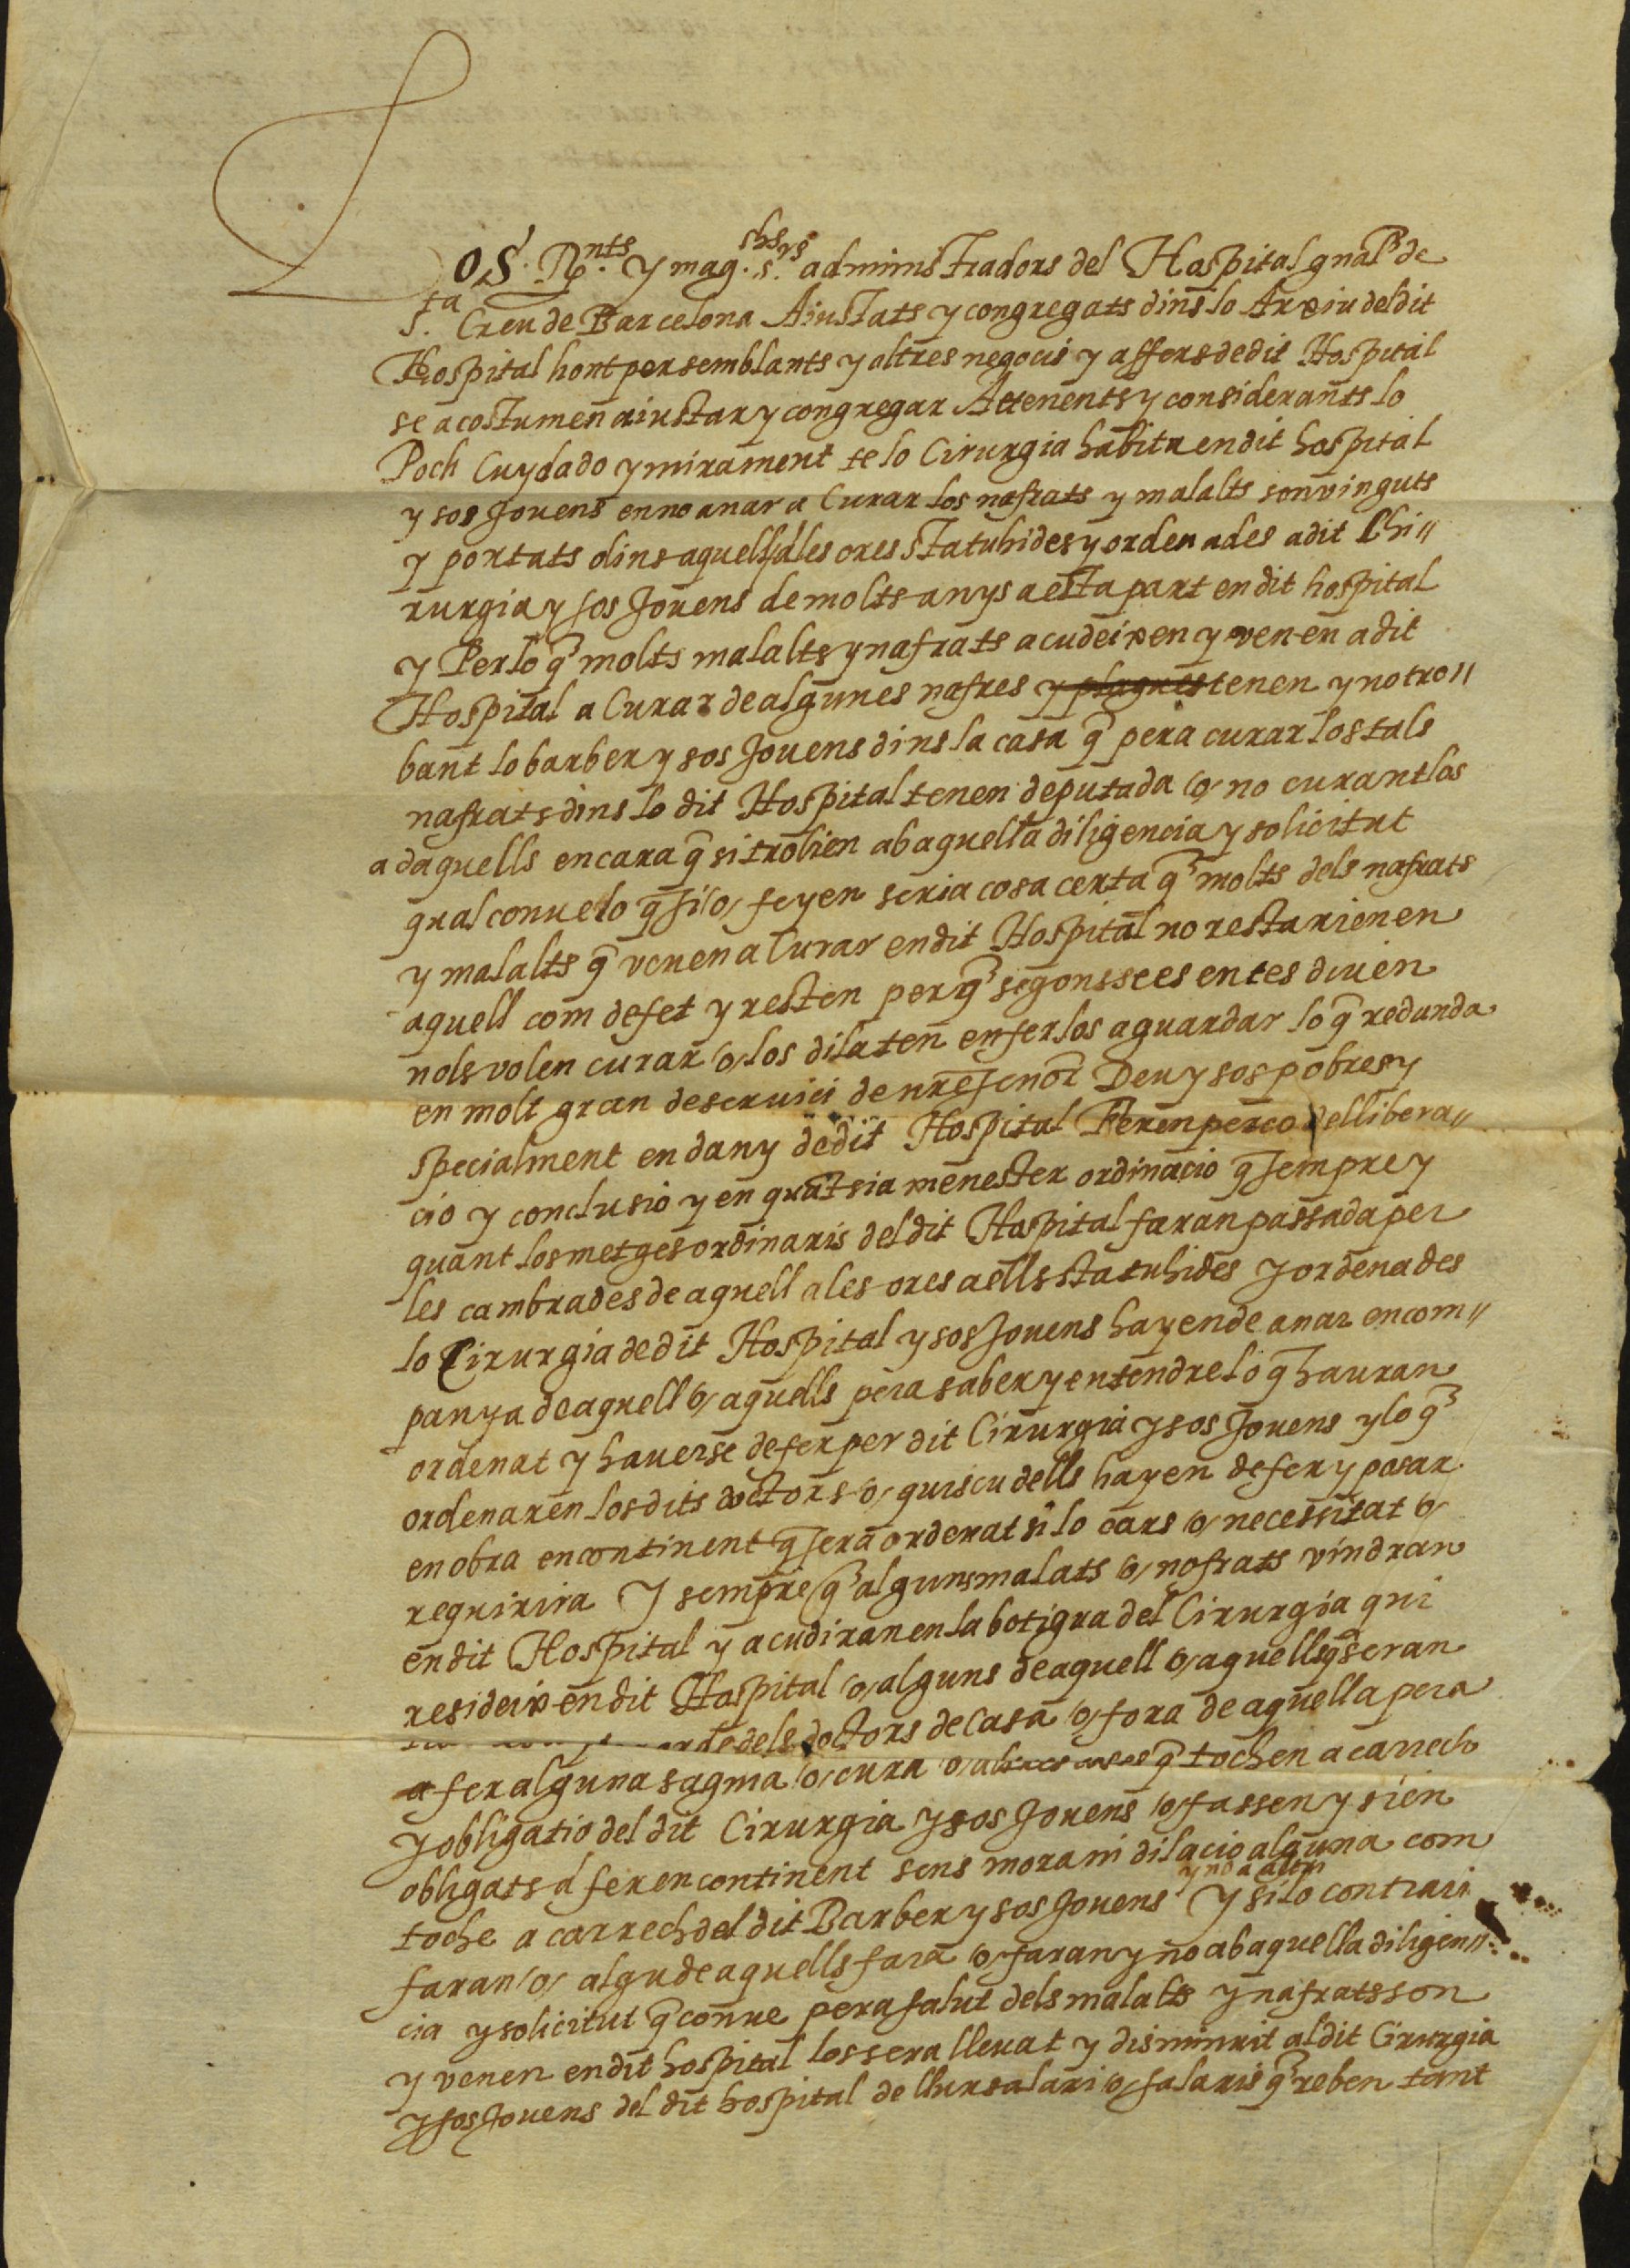 LOS R.nts y mag.chs s.rs administradors del Hospital gnal de
S.ta Creu de Barcelona Aiustats y congregats dins lo Arxiu del dit
Hospital hont per semblants y altres negocis y affers de dit Hospital
se acostumen aiustar y congregar Attenents y considerants lo
Poch Cuydado y mirament te lo Cirurgia habita en dit hospital
y sos Jovens en no anar a Curar los nafrats y malalts son vinguts
y portats dins aquell a les ores statuhides y ordenades a dit Chi//
rurgia y sos Jovens de molts anys a esta part en dit hospital
y Per lo q̃ molts malalts y nafrats acudeixen y venen a dit
Hospital a Curar de algunes nafres y plagues tenen y no tro//
bant lo barber y sos Jovens dins la casa q̃ pera curar los tals
nafrats dins lo dit Hospital tenen deputada o, no curantlos
a daquells encara q̃ si trobien ab aquella diligencia y solicitut
qual conve lo q̃ si lo, feyen seria cosa certa q̃ molts dels nafrats
y malalts q̃ venen a Curar en dit Hospital no restarien en
aquell com de fet y resten perq̃ segons se es entes diuen
nols volen curar o, los dilaten en ferlos aguardar lo q̃ redunda
en molt gran deservici de nr̃e senor Deu y sos pobres y
specialment en dany de dit Hospital Feren perço dellibera//
cio y conclusio y en quãt sia menester ordinacio q̃ sempre y
quant los metges ordinaris del dit Hospital faran passada per
les cambrades de aquell a les ores a ells statuhides y ordenades
lo Cirurgia de dit Hospital y sos Jovens hayen de anar en com//
panya de aquell o, aquells pera saber y entendre lo q̃ hauran
ordenat y haverse de fer per dit Cirurgia y sos Jovens y lo q̃
ordenaren los dits doctors o, quiscu dells hayen de fer y posar
en obra encontinent q̃ sera ordenat si lo cars o, necessitat o,
requirira Y sempre q̃ alguns malats o, nafrats vindran
en dit Hospital y acudiran en la botigua del Cirurgia qui
resideix en dit Hospital o, alguns de aquell o, aquells q̃ seran
orde dels doctors de Casa o, fora de aquella pera
a fer alguna sagnia o, cura o, altres coses q̃ tochen a carrech
y obligatio del dit Cirurgia y sos Jovens o, fassen y sien
obligats a fer encontinent sens mora ni dilacio alguna com
toche a carrech del dit Barber y sos Jovens y no a altri Y si lo contrari
faran o, algu de aquells fara o, faran y no ab aquella diligen//
cia y solicitut q̃ conve pera salut dels malalts y nafrats son
y venen en dit hospital los sera llevat y disminuit al dit Cirurgia
y sos Jovens del dit hospital de llur salari o, salaris q̃ reben tant